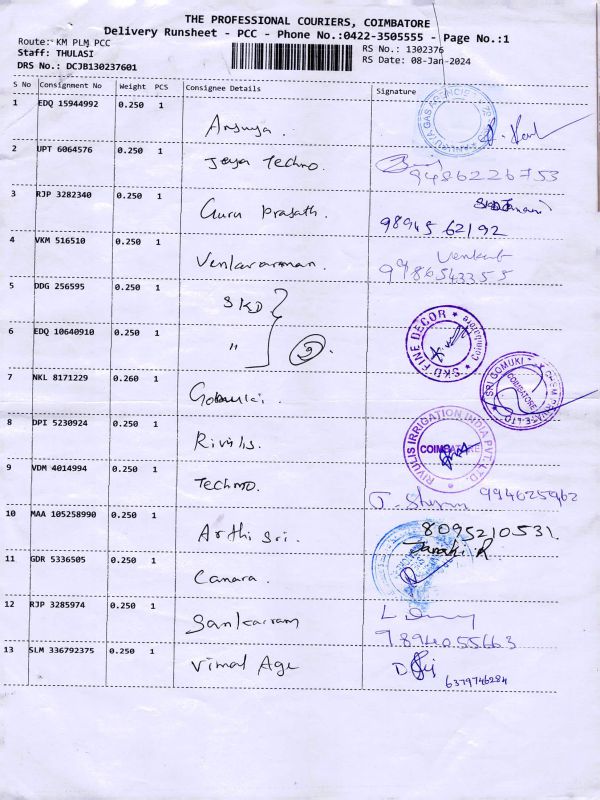 THE PROFESSIONAL COURIERS, COIMBATORE
Delivery Runsheet - PCC - Phone No.:0422-3505555 - Page No.:1
Route: KM PLM PCC
RS No.: 1302376
Staff: THULASI
RS Date: 08-Jan-2024
DRS No.: DCJB130237601
S No Consignment No Weight PCS Consignee Details Signature
1 EDQ 15944992 0.250 1
Ansuya.
2 UPT 6064576 0.250 1
Jaya Techno.
9486226753
3 RJP 3282340 0.250 1
Guru Prasath.
98945 62192
4 VKM 516510 0.250 1
Venkataraman. Venkat
5 DDG 256595 0.250 1
SKD
SKD FINE DECOR * Coimbatore *
6 EDQ 10640910 0.250 1
"
7 NKL 8171229 0.260 1
SRI GOMUKI
COIMBATORE
8 DPI 5230924 0.250 1
Rivulis.
RIVULIS IRRIGATION INDIA PVT. LTD.
COIMBATORE
9 VDM 4014994 0.250 1
Techno.
994625962
10 MAA 105258990 0.250 1
Arthi Sri.
8095210531.
Janaki R
11 GDR 5336505 0.250 1
Canara.
12 RJP 3285974 0.250 1
Sankarram
9894055663
13 SLM 336792375 0.250 1
Vimal Age
6379746284